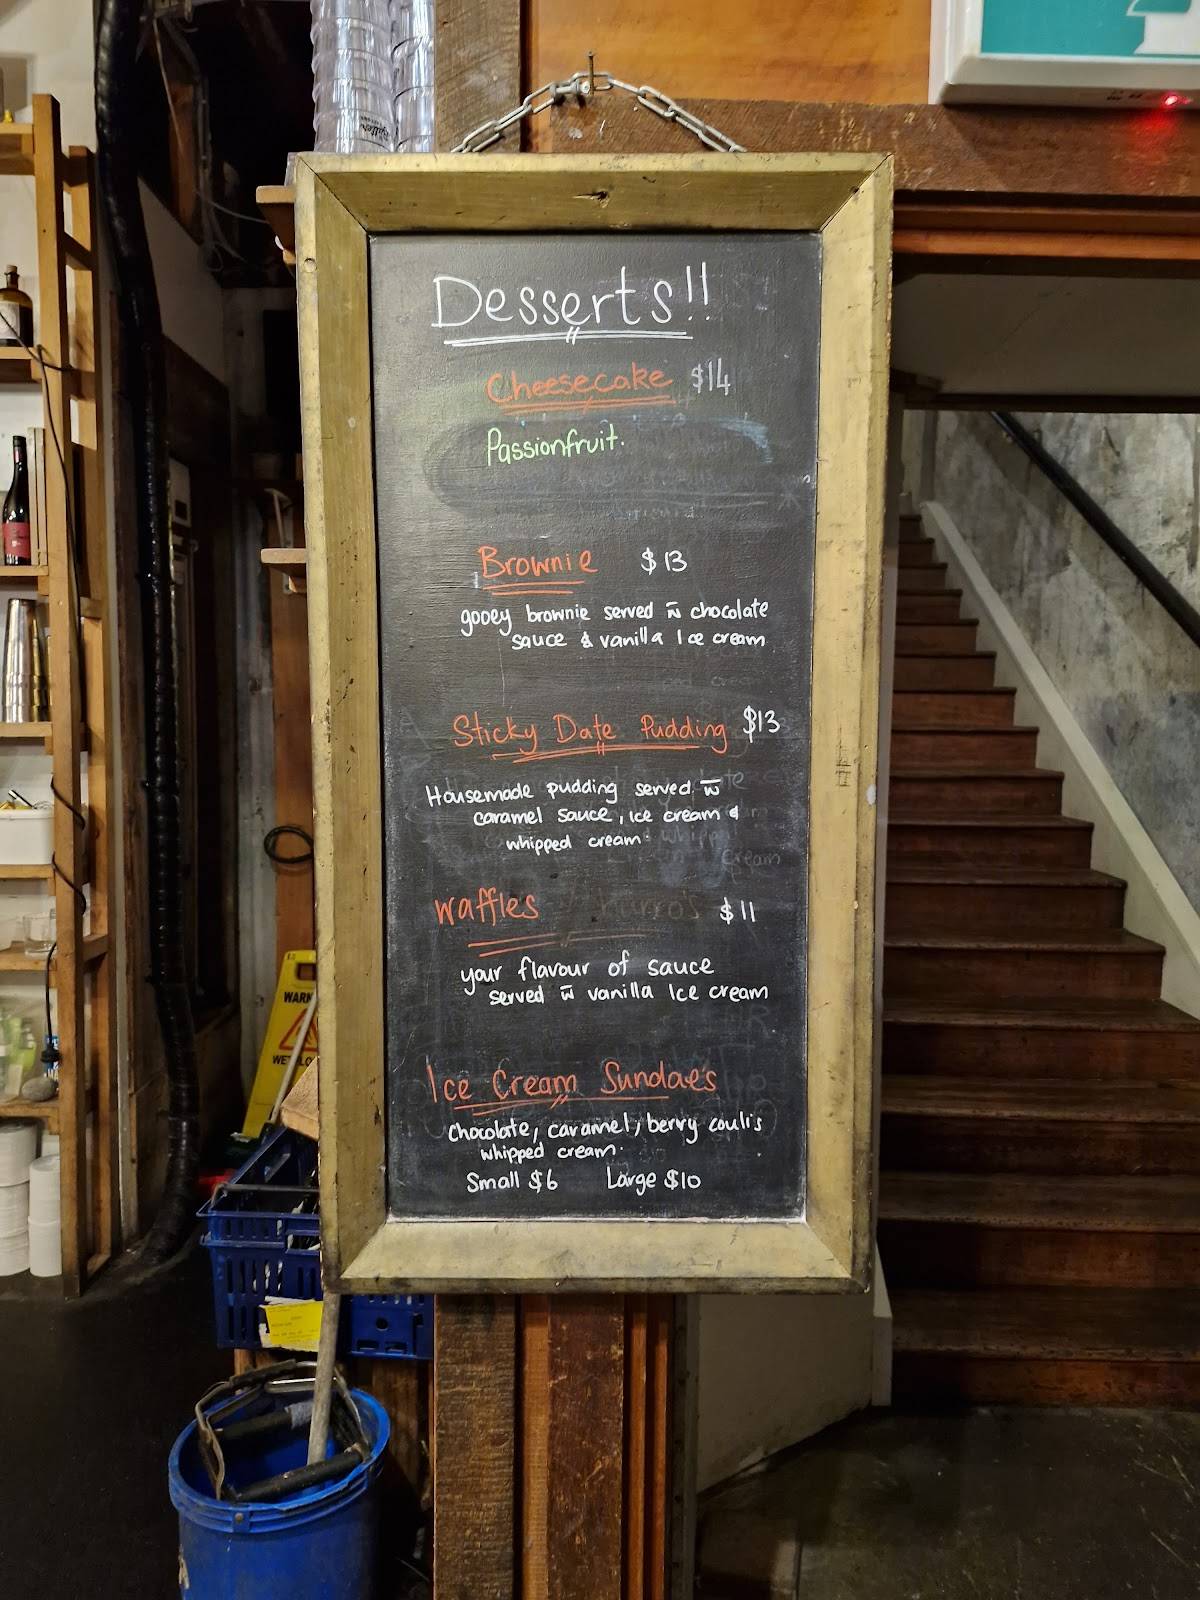 Desserts!!
Cheesecake $14
Passionfruit.
Brownie $13
gooey brownie served w̄ chocolate
sauce & vanilla Ice cream
Sticky Date Pudding $13
Housemade pudding served w̄
caramel sauce, ice cream &
whipped cream.
waffles $11
your flavour of sauce
served w̄ vanilla Ice cream
Ice Cream Sundae's
chocolate, caramel, berry coulis
whipped cream.
Small $6 Large $10
WARN